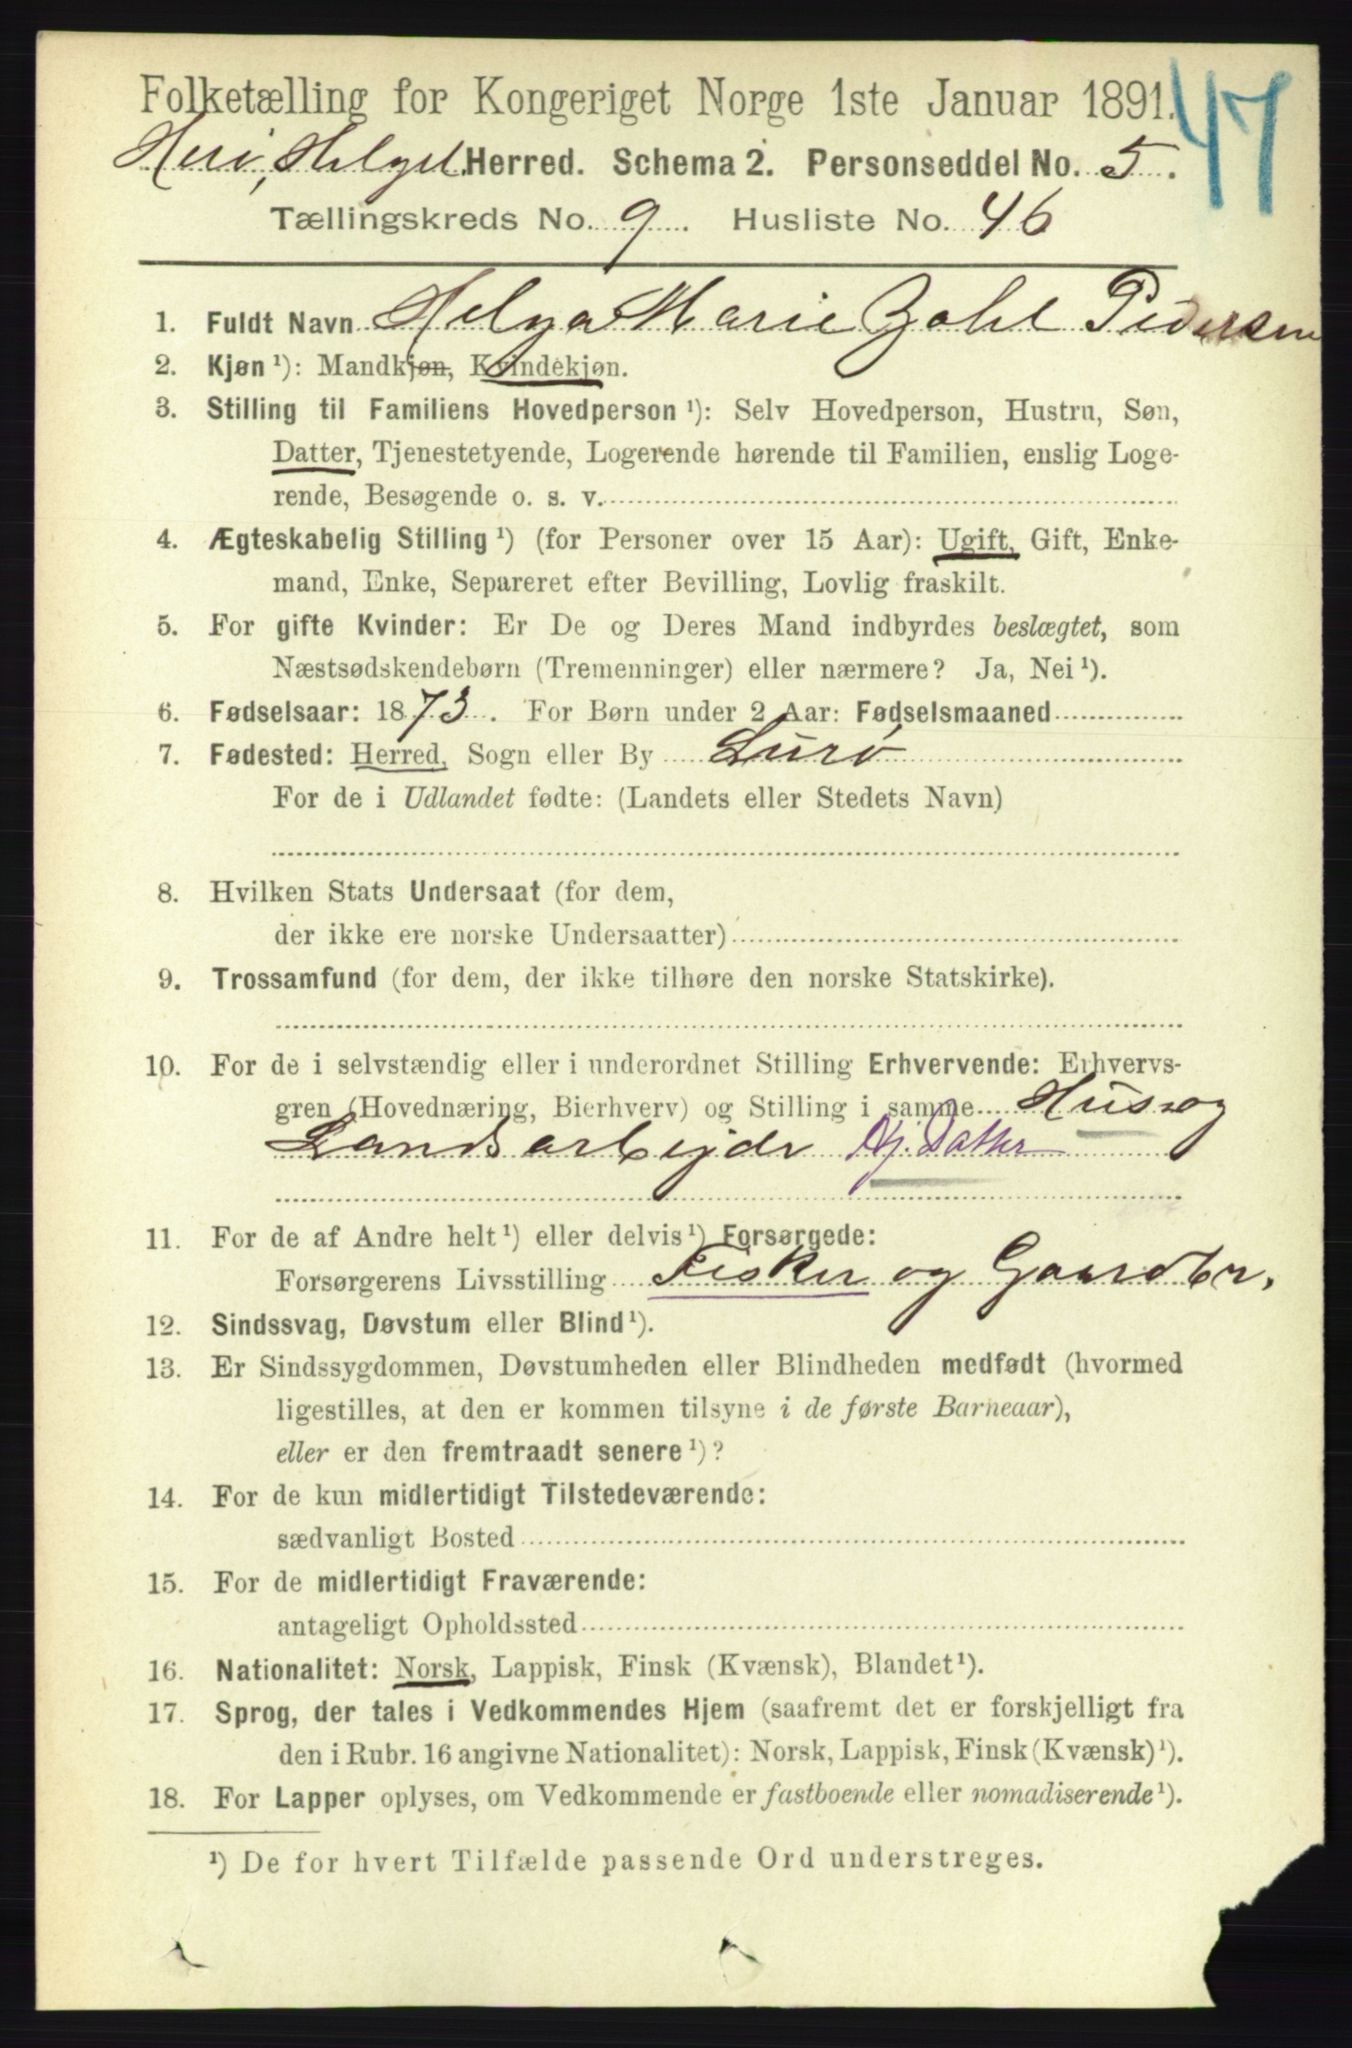 Folketælling for Kongeriget Norge 1ste Januar 1891.
47
Herø, Helgel. Herred. Schema 2. Personseddel No. 5.
Tællingskreds No. 9. Husliste No. 46
1. Fuldt Navn Helga Marie Zahl Pedersen
2. Kjøn ¹): Mandkjøn, Kvindekjøn.
3. Stilling til Familiens Hovedperson ¹): Selv Hovedperson, Hustru, Søn,
Datter, Tjenestetyende, Logerende hørende til Familien, enslig Loge-
rende, Besøgende o. s. v.
4. Ægteskabelig Stilling ¹) (for Personer over 15 Aar): Ugift, Gift, Enke-
mand, Enke, Separeret efter Bevilling, Lovlig fraskilt.
5. For gifte Kvinder: Er De og Deres Mand indbyrdes beslægtet, som
Næstsødskendebørn (Tremenninger) eller nærmere? Ja, Nei ¹).
6. Fødselsaar: 1873. For Børn under 2 Aar: Fødselsmaaned
7. Fødested: Herred, Sogn eller By Lurø
For de i Udlandet fødte: (Landets eller Stedets Navn)
8. Hvilken Stats Undersaat (for dem,
der ikke ere norske Undersaatter)
9. Trossamfund (for dem, der ikke tilhøre den norske Statskirke).
10. For de i selvstændig eller i underordnet Stilling Erhvervende: Erhvervs-
gren (Hovednæring, Bierhverv) og Stilling i samme Hus og
Landsarbejde Hj. Datter
11. For de af Andre helt ¹) eller delvis ¹) Forsørgede:
Forsørgerens Livsstilling Fisker og Gaardbr.
12. Sindssvag, Døvstum eller Blind ¹).
13. Er Sindssygdommen, Døvstumheden eller Blindheden medfødt (hvormed
ligestilles, at den er kommen tilsyne i de første Barneaar),
eller er den fremtraadt senere ¹)?
14. For de kun midlertidigt Tilstedeværende:
sædvanligt Bosted
15. For de midlertidigt Fraværende:
antageligt Opholdssted
16. Nationalitet: Norsk, Lappisk, Finsk (Kvænsk), Blandet ¹).
17. Sprog, der tales i Vedkommendes Hjem (saafremt det er forskjelligt fra
den i Rubr. 16 angivne Nationalitet): Norsk, Lappisk, Finsk (Kvænsk) ¹).
18. For Lapper oplyses, om Vedkommende er fastboende eller nomadiserende ¹).
¹) De for hvert Tilfælde passende Ord understreges.